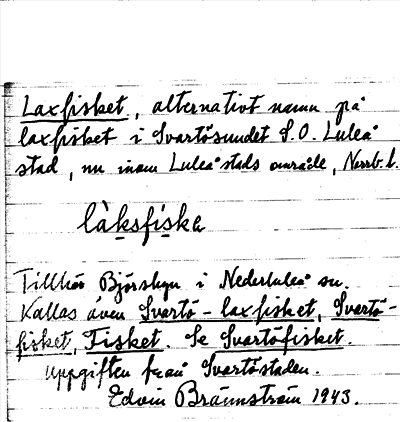 Laxfisket, alternativt namn på
laxfisket i Svartösundet S.O. Luleå
stad, nu inom Luleå stads område, Norrb. l.
làksfiske
Tillhör Björsbyn i Nederluleå sn.
Kallas även Svartö-laxfisket, Svartö-
fisket, Fisket. Se Svartöfisket.
Uppgiften från Svartöstaden.
Edvin Brännström 1943.